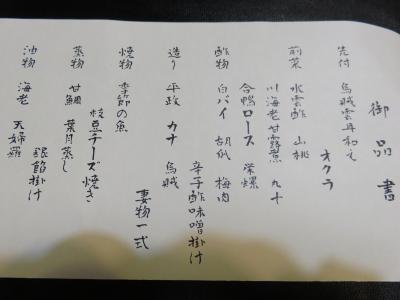 御品書
先付 烏賊雲丹和え
オクラ
前菜 水雲酢 山桃
川海老甘露煮 丸十
合鴨ロース 栄螺
酢物 白バイ 胡瓜 梅肉
辛子酢味噌掛け
造り 平政 カナ 烏賊
妻物一式
焼物 季節の魚
枝豆チーズ焼き
蒸物 甘鯛 葉月蒸し
銀餡掛け
油物 海老 天婦羅